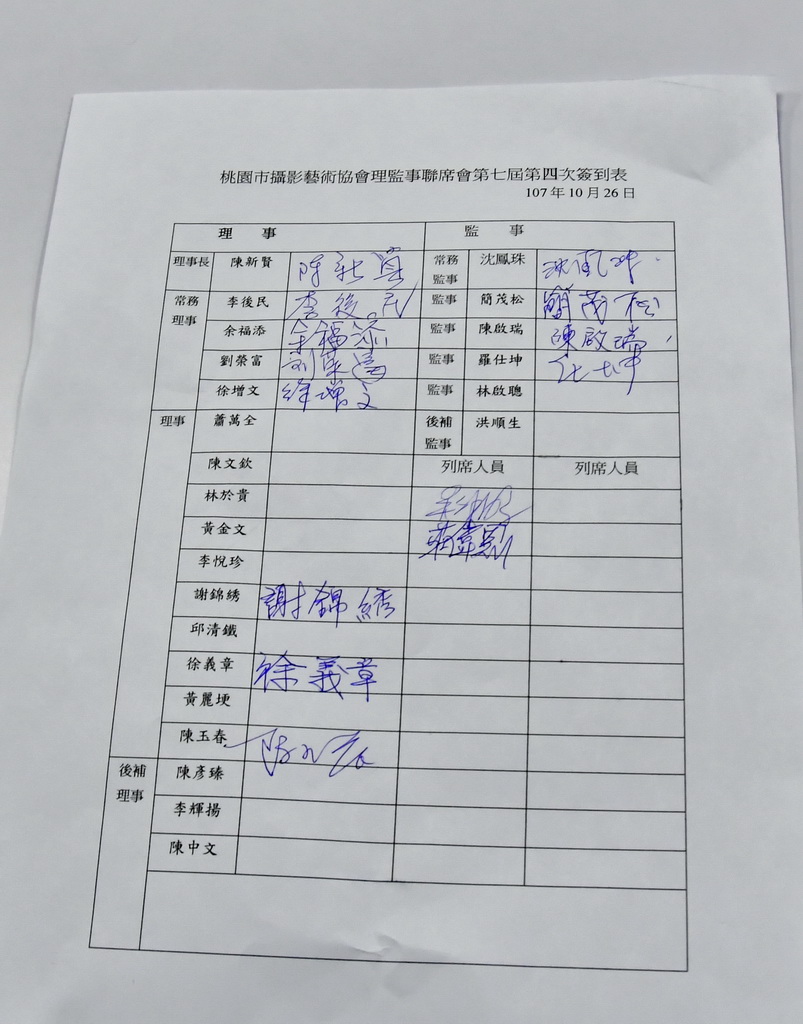 桃園市攝影藝術協會理監事聯席會第七屆第四次簽到表
107 年 10 月 26 日
理 事 監 事
理事長 陳新賢 常務監事 沈鳳珠
常務理事 李後民 李後民 監事 簡茂松 簡茂松
余福添 余福添 監事 陳啟瑞 陳啟瑞
劉榮富 監事 羅仕坤
徐增文 徐增文 監事 林啟聰
理事 蕭萬全 後補監事 洪順生
陳文欽 列席人員 列席人員
林於貴
黃金文
李悅珍
謝錦綉 謝錦綉
邱清鐵
徐義章 徐義章
黃麗埂
陳玉春
後補理事 陳彥臻
李輝揚
陳中文